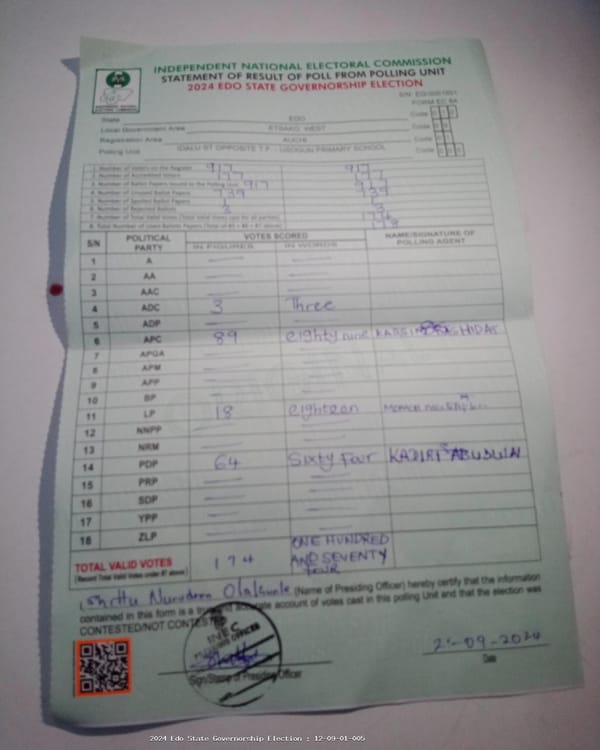 INDEPENDENT NATIONAL ELECTORAL COMMISSION
STATEMENT OF RESULT OF POLL FROM POLLING UNIT
2024 EDO STATE GOVERNORSHIP ELECTION
FORM EC 8A
State EDO Code
Local Government Area ETSAKO WEST Code
Registration Area AUCHI Code
Polling Unit IDALU ST OPPOSITE T.P. - USOGUN PRIMARY SCHOOL Code
1. Number of Voters on the Register 917 917
2. Number of Accredited Voters 177 177
3. Number of Ballot Papers Issued to the Polling Unit 917
4. Number of Unused Ballot Papers 739 739
5. Number of Spoiled Ballot Papers 1
6. Number of Rejected Ballots 3 3
7. Number of Total Valid Votes (Total Valid Votes cast for all parties)
8. Total Number of Used Ballot Papers (Total of #5 + #6 + #7 above) 178
S/N POLITICAL PARTY VOTES SCORED NAME/SIGNATURE OF POLLING AGENT
IN FIGURES IN WORDS
1 A
2 AA
3 AAC
4 ADC 3 Three
5 ADP
6 APC 89 eighty nine
7 APGA
8 APM
9 APP
10 BP
11 LP 18 eighteen
12 NNPP
13 NRM
14 PDP 64 Sixty four KADIRI
15 PRP
16 SDP
17 YPP
18 ZLP
TOTAL VALID VOTES 174 ONE HUNDRED AND SEVENTY FOUR
(Record Total Valid Votes under #7 above)
I, Nurudeen (Name of Presiding Officer) hereby certify that the information
contained in this form is a true and accurate account of votes cast in this polling Unit and that the election was
CONTESTED/NOT CONTESTED
INEC
PRESIDING OFFICER
-09-2024
Sign/Stamp of Presiding Officer Date
2024 Edo State Governorship Election : 12-09-01-005